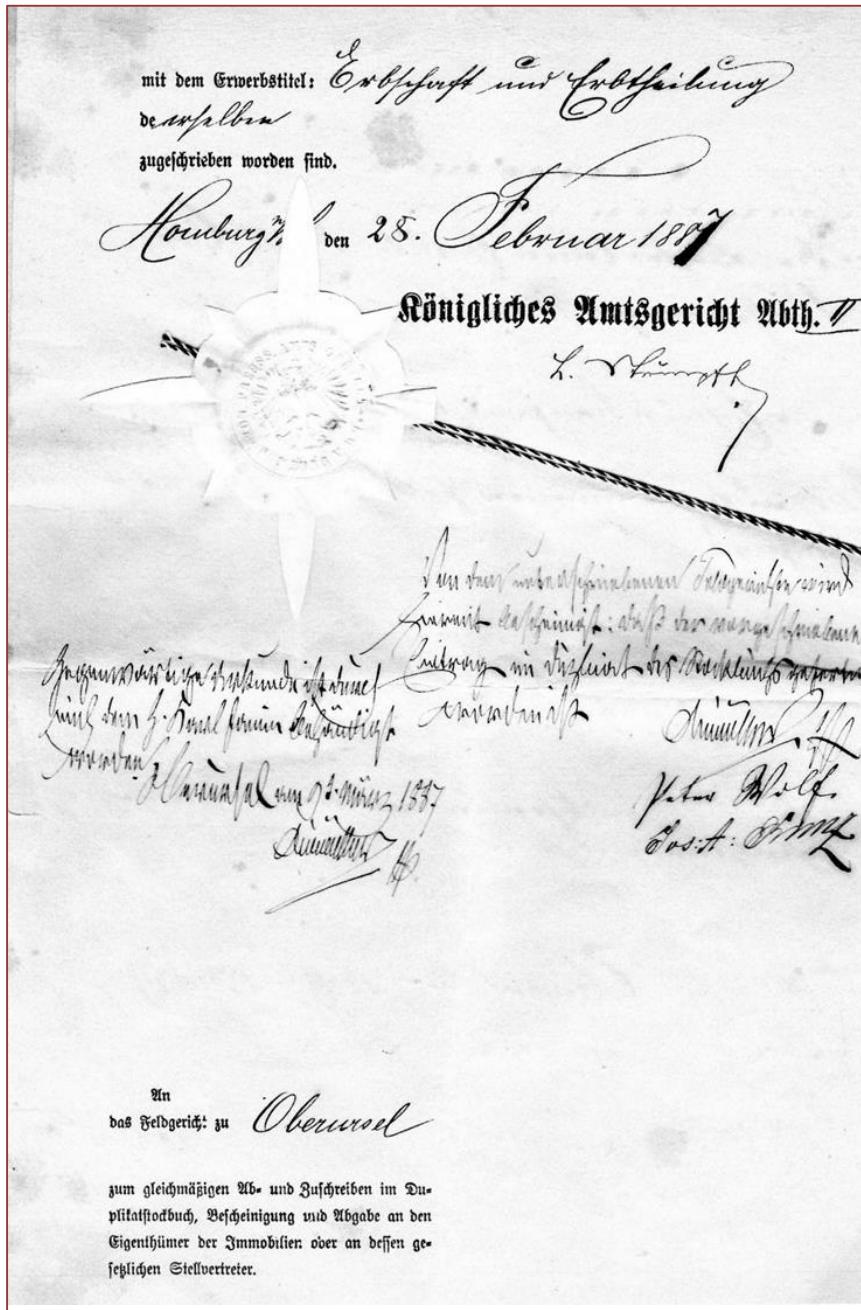 mit dem Erwerbstitel: Erbschaft und Erbtheilung
derselben
zugeschrieben worden sind.
Homburg den 28. Februar 1887
Königliches Amtsgericht Abth. II
Von dem unterschriebenen Feldgerichte wird
hiermit bescheinigt: daß der vorgeschriebene
Eintrag im Duplicat des Stockbuchs
worden ist
Peter Wolf.
Jos: A:
Gegenwärtige Urkunde ist durch
mich dem H. behändigt
worden.
Oberursel am März 1887
An
das Feldgericht zu Oberursel
zum gleichmäßigen Ab- und Zuschreiben im Du-
plikatstockbuch, Bescheinigung und Abgabe an den
Eigenthümer der Immobilien oder an dessen ge-
setzlichen Stellvertreter.